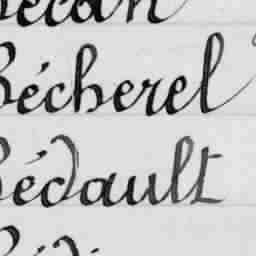 Bécan
Bécherel
Bédault